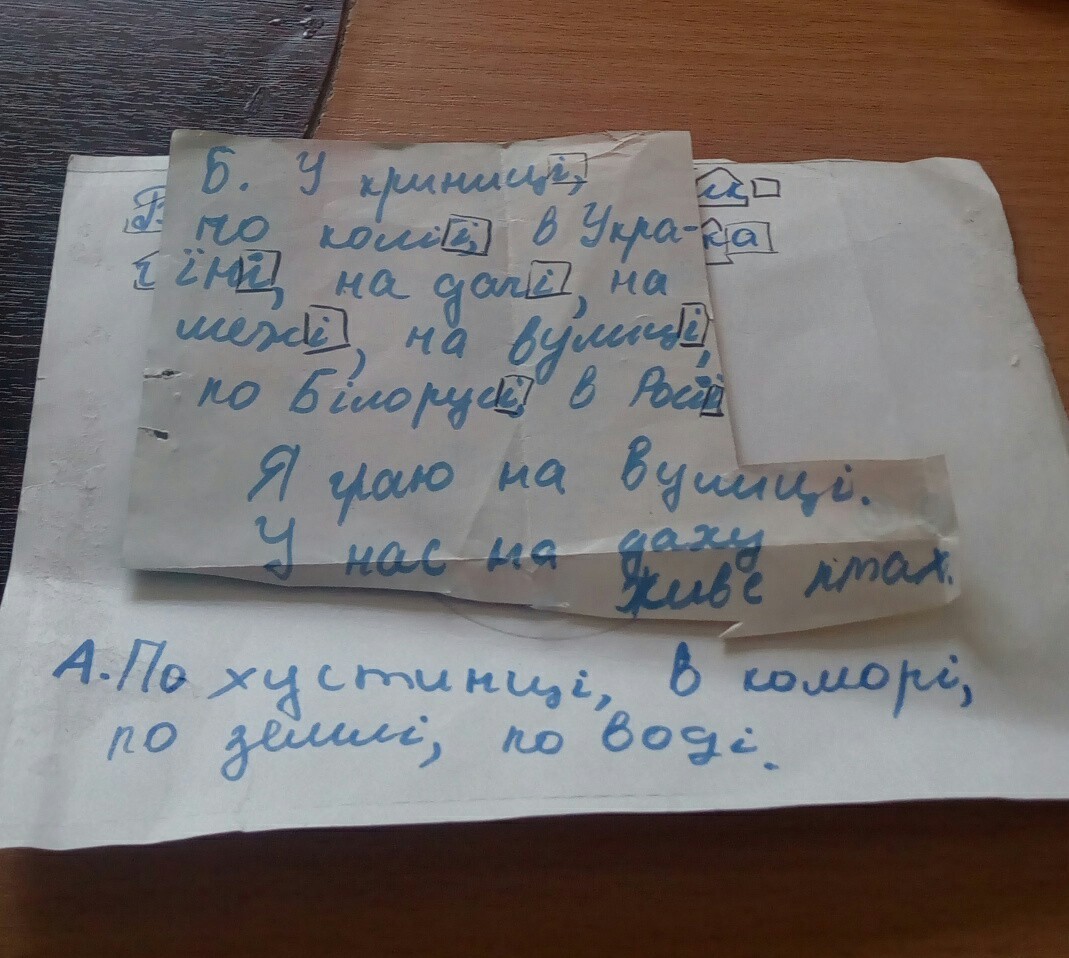 Б. У криниці,
по колії, в Укра-
їні, на дачі, на
межі, на вулиці,
по Білорусі, в Росії
Я граю на вулиці.
У нас на даху
живе птах.
А. По хустинці, в коморі,
по землі, по воді.